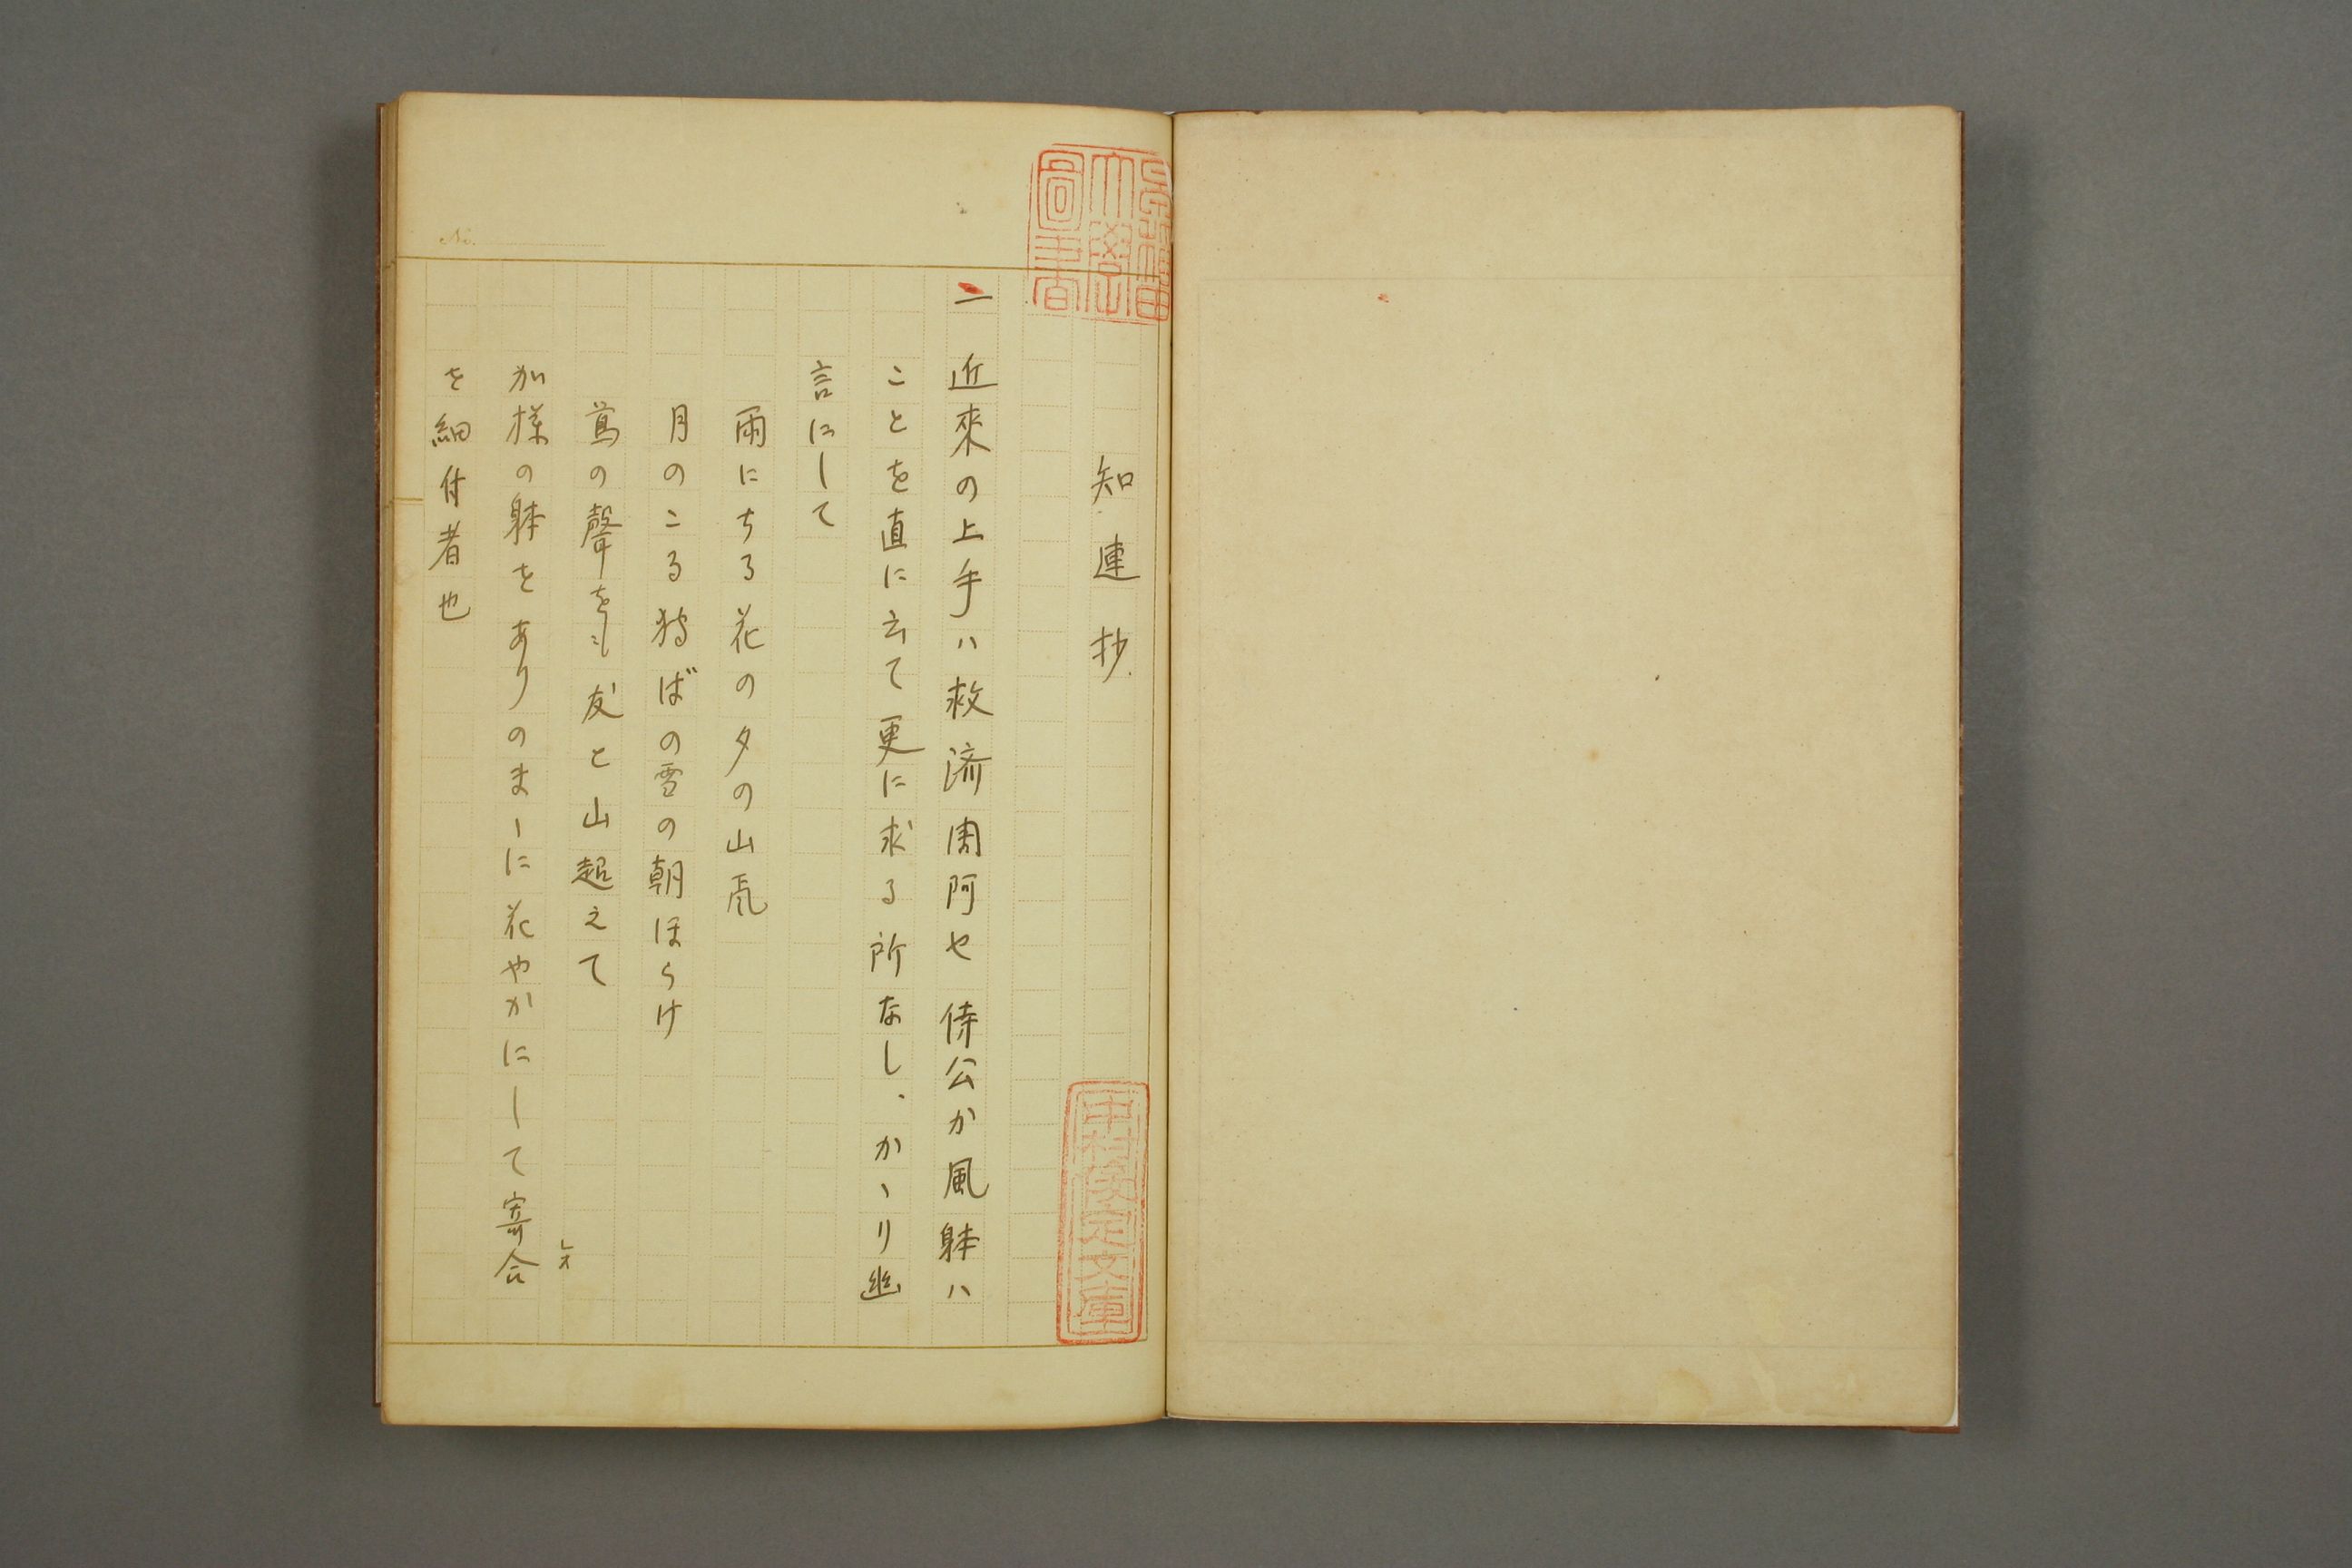 知連抄
一 近來の上手ハ救済周阿や侍公か風躰ハ
ことを直に云て更に求る所なし、かゝり幽
言にして
雨にちる花の夕の山風
月のこる狩ばの雪の朝ほらけ
鳶の聲をも友と山超えて
か様の躰をありのまゝに花やかにして寄合
を細付者也
早稲田大學圖書
中村俊定文庫
No.